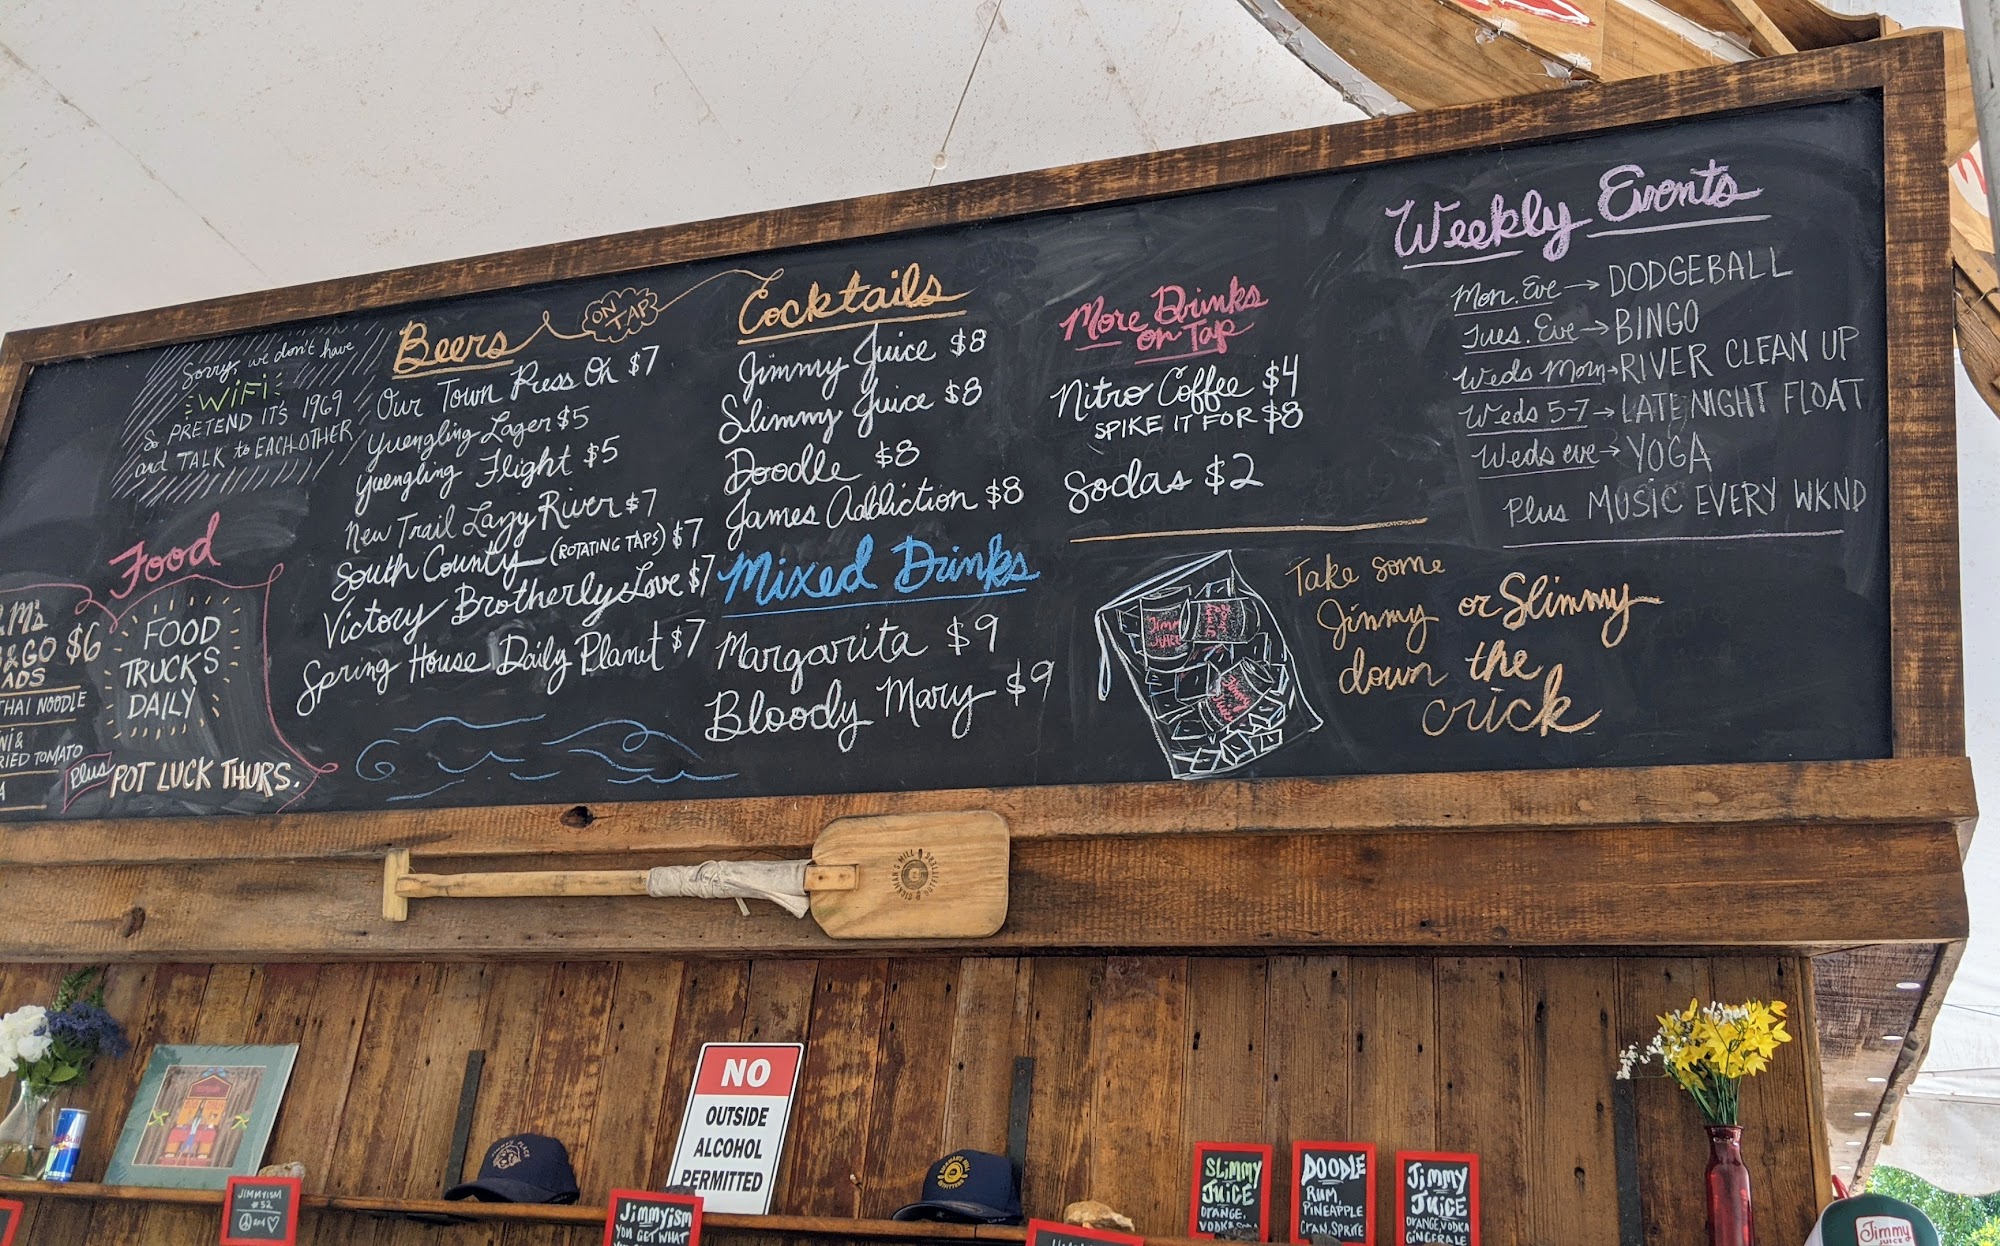 Sorry, we don't have
WiFi
So PRETEND IT'S 1969
and TALK to EACH OTHER
Food
FOOD
TRUCKS
DAILY
Plus POT LUCK THURS.
.M's
& GO $6
ADS
THAI NOODLE
NI &
RIED TOMATO
A
Beers ON TAP
Our Town Press On $7
Yuengling Lager $5
Yuengling Flight $5
New Trail Lazy River $7
South County (ROTATING TAPS) $7
Victory Brotherly Love $7
Spring House Daily Planet $7
Cocktails
Jimmy Juice $8
Slimmy Juice $8
Doodle $8
James Addiction $8
Mixed Drinks
Margarita $9
Bloody Mary $9
More Drinks
on Tap
Nitro Coffee $4
SPIKE IT FOR $8
Sodas $2
Weekly Events
Mon. Eve → DODGEBALL
Tues. Eve → BINGO
Weds Morn → RIVER CLEAN UP
Weds 5-7 → LATE NIGHT FLOAT
Weds eve → YOGA
Plus MUSIC EVERY WKND
Take some
Jimmy or Slimmy
down the
crick
NO
OUTSIDE
ALCOHOL
PERMITTED
JIMMYISM
#52
Jimmyism
YOU GET WHAT
SLIMMY
JUICE
ORANGE,
VODKA
DOODLE
RUM,
PINEAPPLE
CRAN, SPRITE
JIMMY
JUICE
ORANGE, VODKA
GINGERALE
Jimmy
JUICE